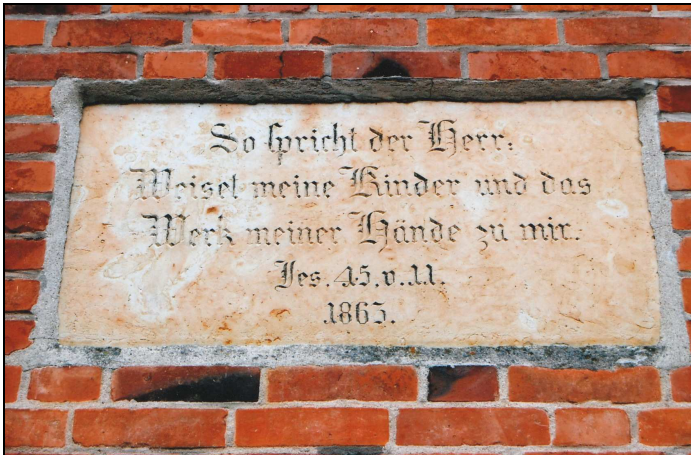 So spricht der Herr:
Weiset meine Kinder und das
Werk meiner Hände zu mir.
Jes. 45. v. 11.
1863.